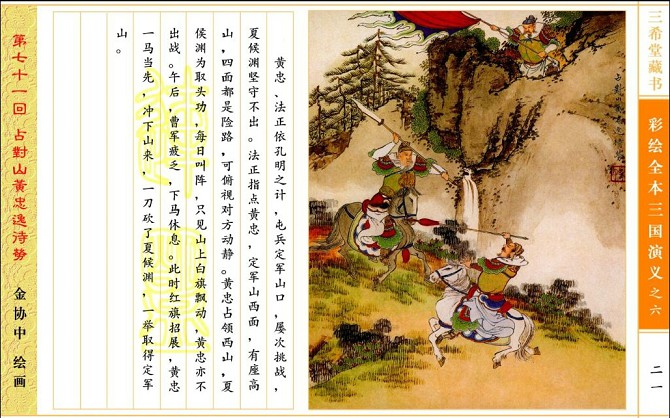 三希堂藏书
彩绘全本三国演义之六
二一
黄忠、法正依孔明之计，屯兵定军山口，屡次挑战，
夏候渊坚守不出。法正指点黄忠，定军山西面，有座高
山，四面都是险路，可俯视对方动静。黄忠占领西山，夏
侯渊为取头功，每日叫阵，只见山上白旗飘动，黄忠亦不
出战。午后，曹军疲乏，下马休息。此时红旗招展，黄忠
一马当先，冲下山来，一刀砍了夏候渊，一举取得定军
山。
第七十一回 占對山黃忠逸待勞
金协中 绘画